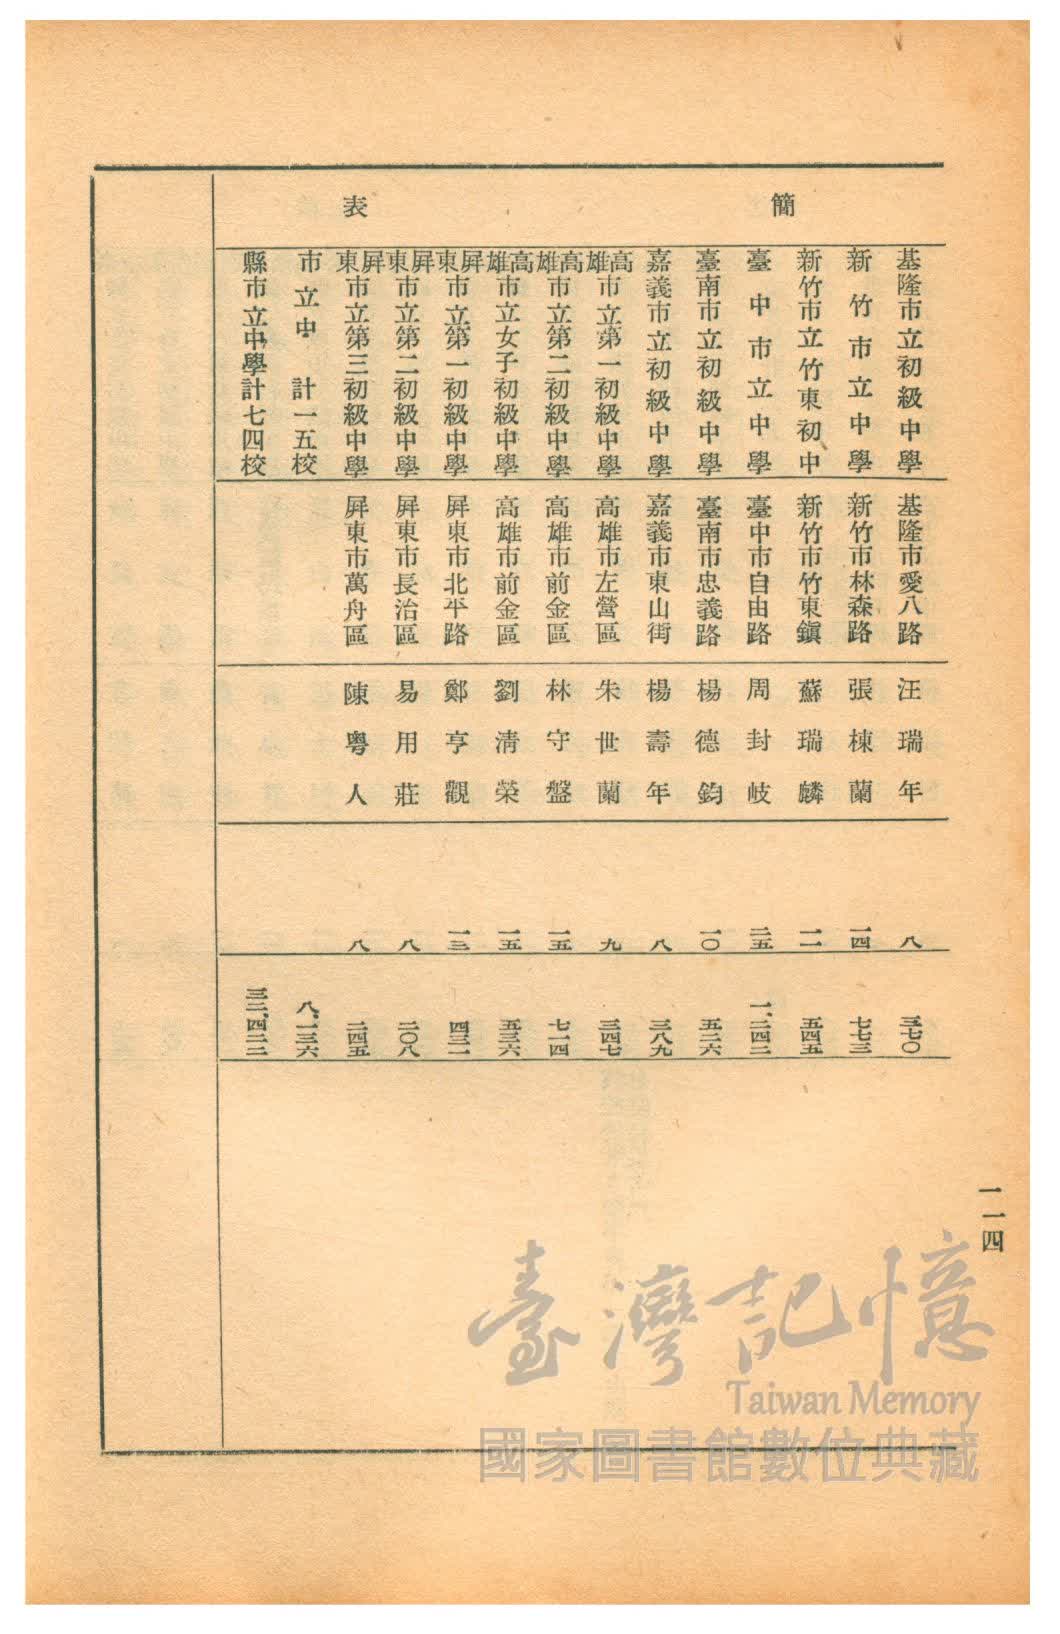 簡表
基隆市立初級中學 基隆市愛八路 汪瑞年 八 三七〇
新竹市立中學 新竹市林森路 張棟蘭 一四 七七三
新竹市立竹東初中 新竹市竹東鎭 蘇瑞麟 一一 五四五
臺中市立中學 臺中市自由路 周封岐 二五 一、二四二
臺南市立初級中學 臺南市忠義路 楊德鈞 一〇 五二六
嘉義市立初級中學 嘉義市東山街 楊壽年 八 三八九
高雄市立第一初級中學 高雄市左營區 朱世蘭 九 三四七
高雄市立第二初級中學 高雄市前金區 林守盤 一五 七一四
高雄市立女子初級中學 高雄市前金區 劉清榮 一五 五三六
屛東市立第一初級中學 屛東市北平路 鄭亨觀 一三 四三一
屛東市立第二初級中學 屛東市長治區 易用莊 八 二〇八
屛東市立第三初級中學 屛東市萬舟區 陳粤人 八 二四五
市立中 計一五校 八、一三六
縣市立中學計七四校 三二、四二二
一一四
臺灣記憶
Taiwan Memory
國家圖書館數位典藏